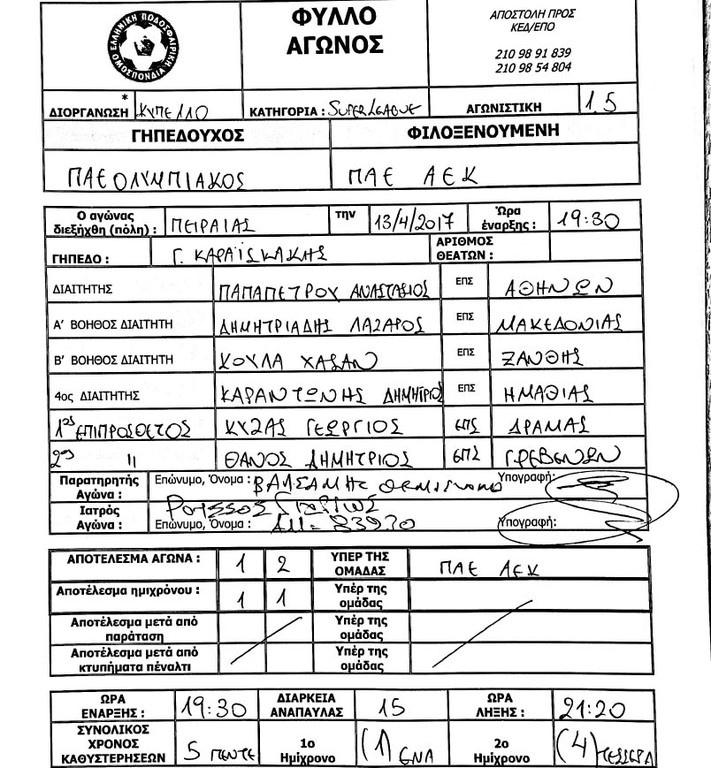 ΕΛΛΗΝΙΚΗ ΠΟΔΟΣΦΑΙΡΙΚΗ ΟΜΟΣΠΟΝΔΙΑ
ΦΥΛΛΟ ΑΓΩΝΟΣ
ΑΠΟΣΤΟΛΗ ΠΡΟΣ
ΚΕΔ/ΕΠΟ
210 98 91 839
210 98 54 804
* ΔΙΟΡΓΑΝΩΣΗ ΚΥΠΕΛΛΟ ΚΑΤΗΓΟΡΙΑ : SUPERLEAGUE ΑΓΩΝΙΣΤΙΚΗ 1.5
ΓΗΠΕΔΟΥΧΟΣ ΦΙΛΟΞΕΝΟΥΜΕΝΗ
ΠΑΕ ΟΛΥΜΠΙΑΚΟΣ ΠΑΕ ΑΕΚ
Ο αγώνας διεξήχθη (πόλη) : ΠΕΙΡΑΙΑΣ την 13/4/2017 Ώρα έναρξης : 19:30
ΓΗΠΕΔΟ : Γ. ΚΑΡΑΪΣΚΑΚΗΣ ΑΡΙΘΜΟΣ ΘΕΑΤΩΝ :
ΔΙΑΙΤΗΤΗΣ ΠΑΠΑΠΕΤΡΟΥ ΑΝΑΣΤΑΣΙΟΣ ΕΠΣ ΑΘΗΝΩΝ
Α' ΒΟΗΘΟΣ ΔΙΑΙΤΗΤΗ ΔΗΜΗΤΡΙΑΔΗΣ ΛΑΖΑΡΟΣ ΕΠΣ ΜΑΚΕΔΟΝΙΑΣ
Β' ΒΟΗΘΟΣ ΔΙΑΙΤΗΤΗ ΚΟΥΛΑ ΧΑΣΑΝ ΕΠΣ ΞΑΝΘΗΣ
4ος ΔΙΑΙΤΗΤΗΣ ΚΑΡΑΝΤΩΝΗΣ ΔΗΜΗΤΡΙΟΣ ΕΠΣ ΗΜΑΘΙΑΣ
1ος ΕΠΙΠΡΟΣΘΕΤΟΣ ΚΥΖΑΣ ΓΕΩΡΓΙΟΣ ΕΠΣ ΔΡΑΜΑΣ
2ος 11 ΘΑΝΟΣ ΔΗΜΗΤΡΙΟΣ ΕΠΣ ΓΡΕΒΕΝΩΝ
Παρατηρητής Αγώνα : Επώνυμο, Όνομα : ΒΑΛΣΑΜΗΣ Υπογραφή:
Ιατρός Αγώνα : Επώνυμο, Όνομα : Υπογραφή:
ΑΠΟΤΕΛΕΣΜΑ ΑΓΩΝΑ : 1 2 ΥΠΕΡ ΤΗΣ ΟΜΑΔΑΣ ΠΑΕ ΑΕΚ
Αποτέλεσμα ημιχρόνου : 1 1 Υπέρ της ομάδας
Αποτέλεσμα μετά από παράταση Υπέρ της ομάδας
Αποτέλεσμα μετά από κτυπήματα πέναλτι Υπέρ της ομάδας
ΩΡΑ ΕΝΑΡΞΗΣ : 19:30 ΔΙΑΡΚΕΙΑ ΑΝΑΠΑΥΛΑΣ 15 ΩΡΑ ΛΗΞΗΣ : 21:20
ΣΥΝΟΛΙΚΟΣ ΧΡΟΝΟΣ ΚΑΘΥΣΤΕΡΗΣΕΩΝ 5 ΠΕΝΤΕ 1ο Ημίχρονο (1) ΕΝΑ 2ο Ημίχρονο (4) ΤΕΣΣΕΡΑ